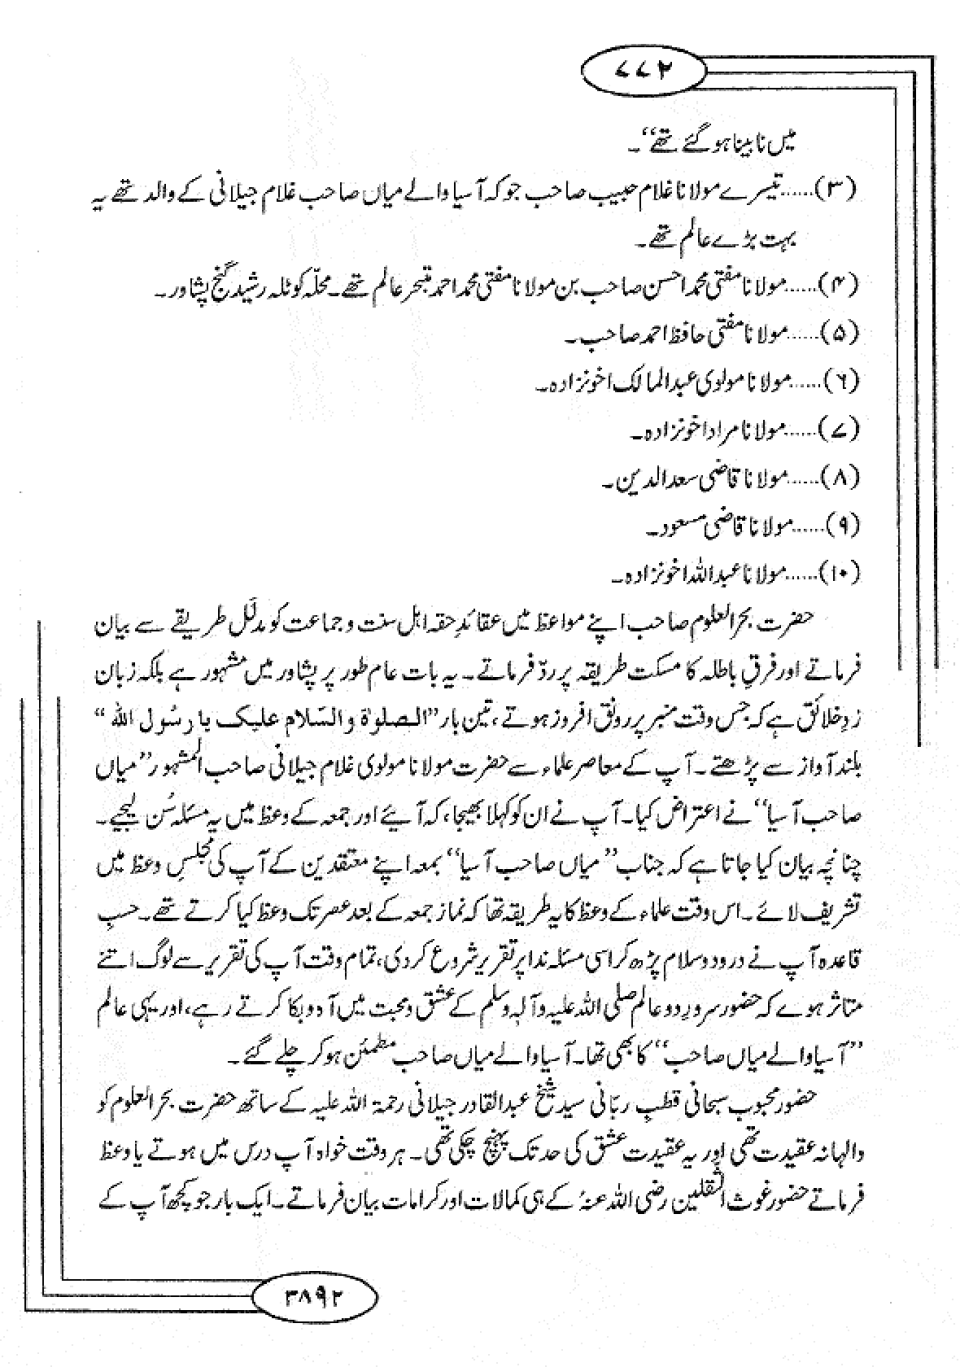 ۷۷۲
میں نابینا ہو گئے تھے‘‘۔
(۳)......تیسرے مولانا غلام حبیب صاحب جو کہ آسیا والے میاں صاحب غلام جیلانی کے والد تھے یہ
بہت بڑے عالم تھے۔
(۴)......مولانا مفتی محمد احسن صاحب بن مولانا مفتی محمد احمد متبحر عالم تھے۔ محلّہ کوٹلہ رشید گنج پشاور۔
(۵)......مولانا مفتی حافظ احمد صاحب۔
(۶)......مولانا مولوی عبدالمالک اخونزادہ۔
(۷)......مولانا مراد اخونزادہ۔
(۸)......مولانا قاضی سعد الدین۔
(۹)......مولانا قاضی مسعود۔
(۱۰)......مولانا عبداللہ اخونزادہ۔
حضرت بحرالعلوم صاحب اپنے مواعظ میں عقائدِ حقہ اہل سنت و جماعت کو مدلّل طریقے سے بیان
فرماتے اور فرقِ باطلہ کا مسکت طریقہ پر ردّ فرماتے۔ یہ بات عام طور پر پشاور میں مشہور ہے بلکہ زبان
زدِ خلائق ہے کہ جس وقت منبر پر رونق افروز ہوتے، تین بار ’’الصلوٰۃ والسّلام علیک یا رسُول اللہ‘‘
بلند آواز سے پڑھتے۔ آپ کے معاصر علماء سے حضرت مولانا مولوی غلام جیلانی صاحب المشہور ’’میاں
صاحب آسیا‘‘ نے اعتراض کیا۔ آپ نے ان کو کہلا بھیجا، کہ آیئے اور جمعہ کے وعظ میں یہ مسئلہ سُن لیجیے۔
چنانچہ بیان کیا جاتا ہے کہ جناب ’’میاں صاحب آسیا‘‘ بمعہ اپنے معتقدین کے آپ کی مجلسِ وعظ میں
تشریف لائے۔ اس وقت علماء کے وعظ کا یہ طریقہ تھا کہ نماز جمعہ کے بعد عصر تک وعظ کیا کرتے تھے۔ حسبِ
قاعدہ آپ نے درود و سلام پڑھ کر اسی مسئلہ ندا پر تقریر شروع کر دی، تمام وقت آپ کی تقریر سے لوگ اتنے
متاثر ہوے کہ حضور سرورِ دو عالم صلی اللہ علیہ وآلہ وسلم کے عشق و محبت میں آہ و بکا کرتے رہے، اور یہی عالم
’’آسیا والے میاں صاحب‘‘ کا بھی تھا۔ آسیا والے میاں صاحب مطمئن ہو کر چلے گئے۔
حضور محبوب سبحانی قطبِ ربّانی سید شیخ عبدالقادر جیلانی رحمۃ اللہ علیہ کے ساتھ حضرت بحرالعلوم کو
والہانہ عقیدت تھی اور یہ عقیدت عشق کی حد تک پہنچ چکی تھی۔ ہر وقت خواہ آپ درس میں ہوتے یا وعظ
فرماتے حضور غوث الثقلین رضی اللہ عنہٗ کے ہی کمالات اور کرامات بیان فرماتے۔ ایک بار جو کچھ آپ کے
۳۸۹۲